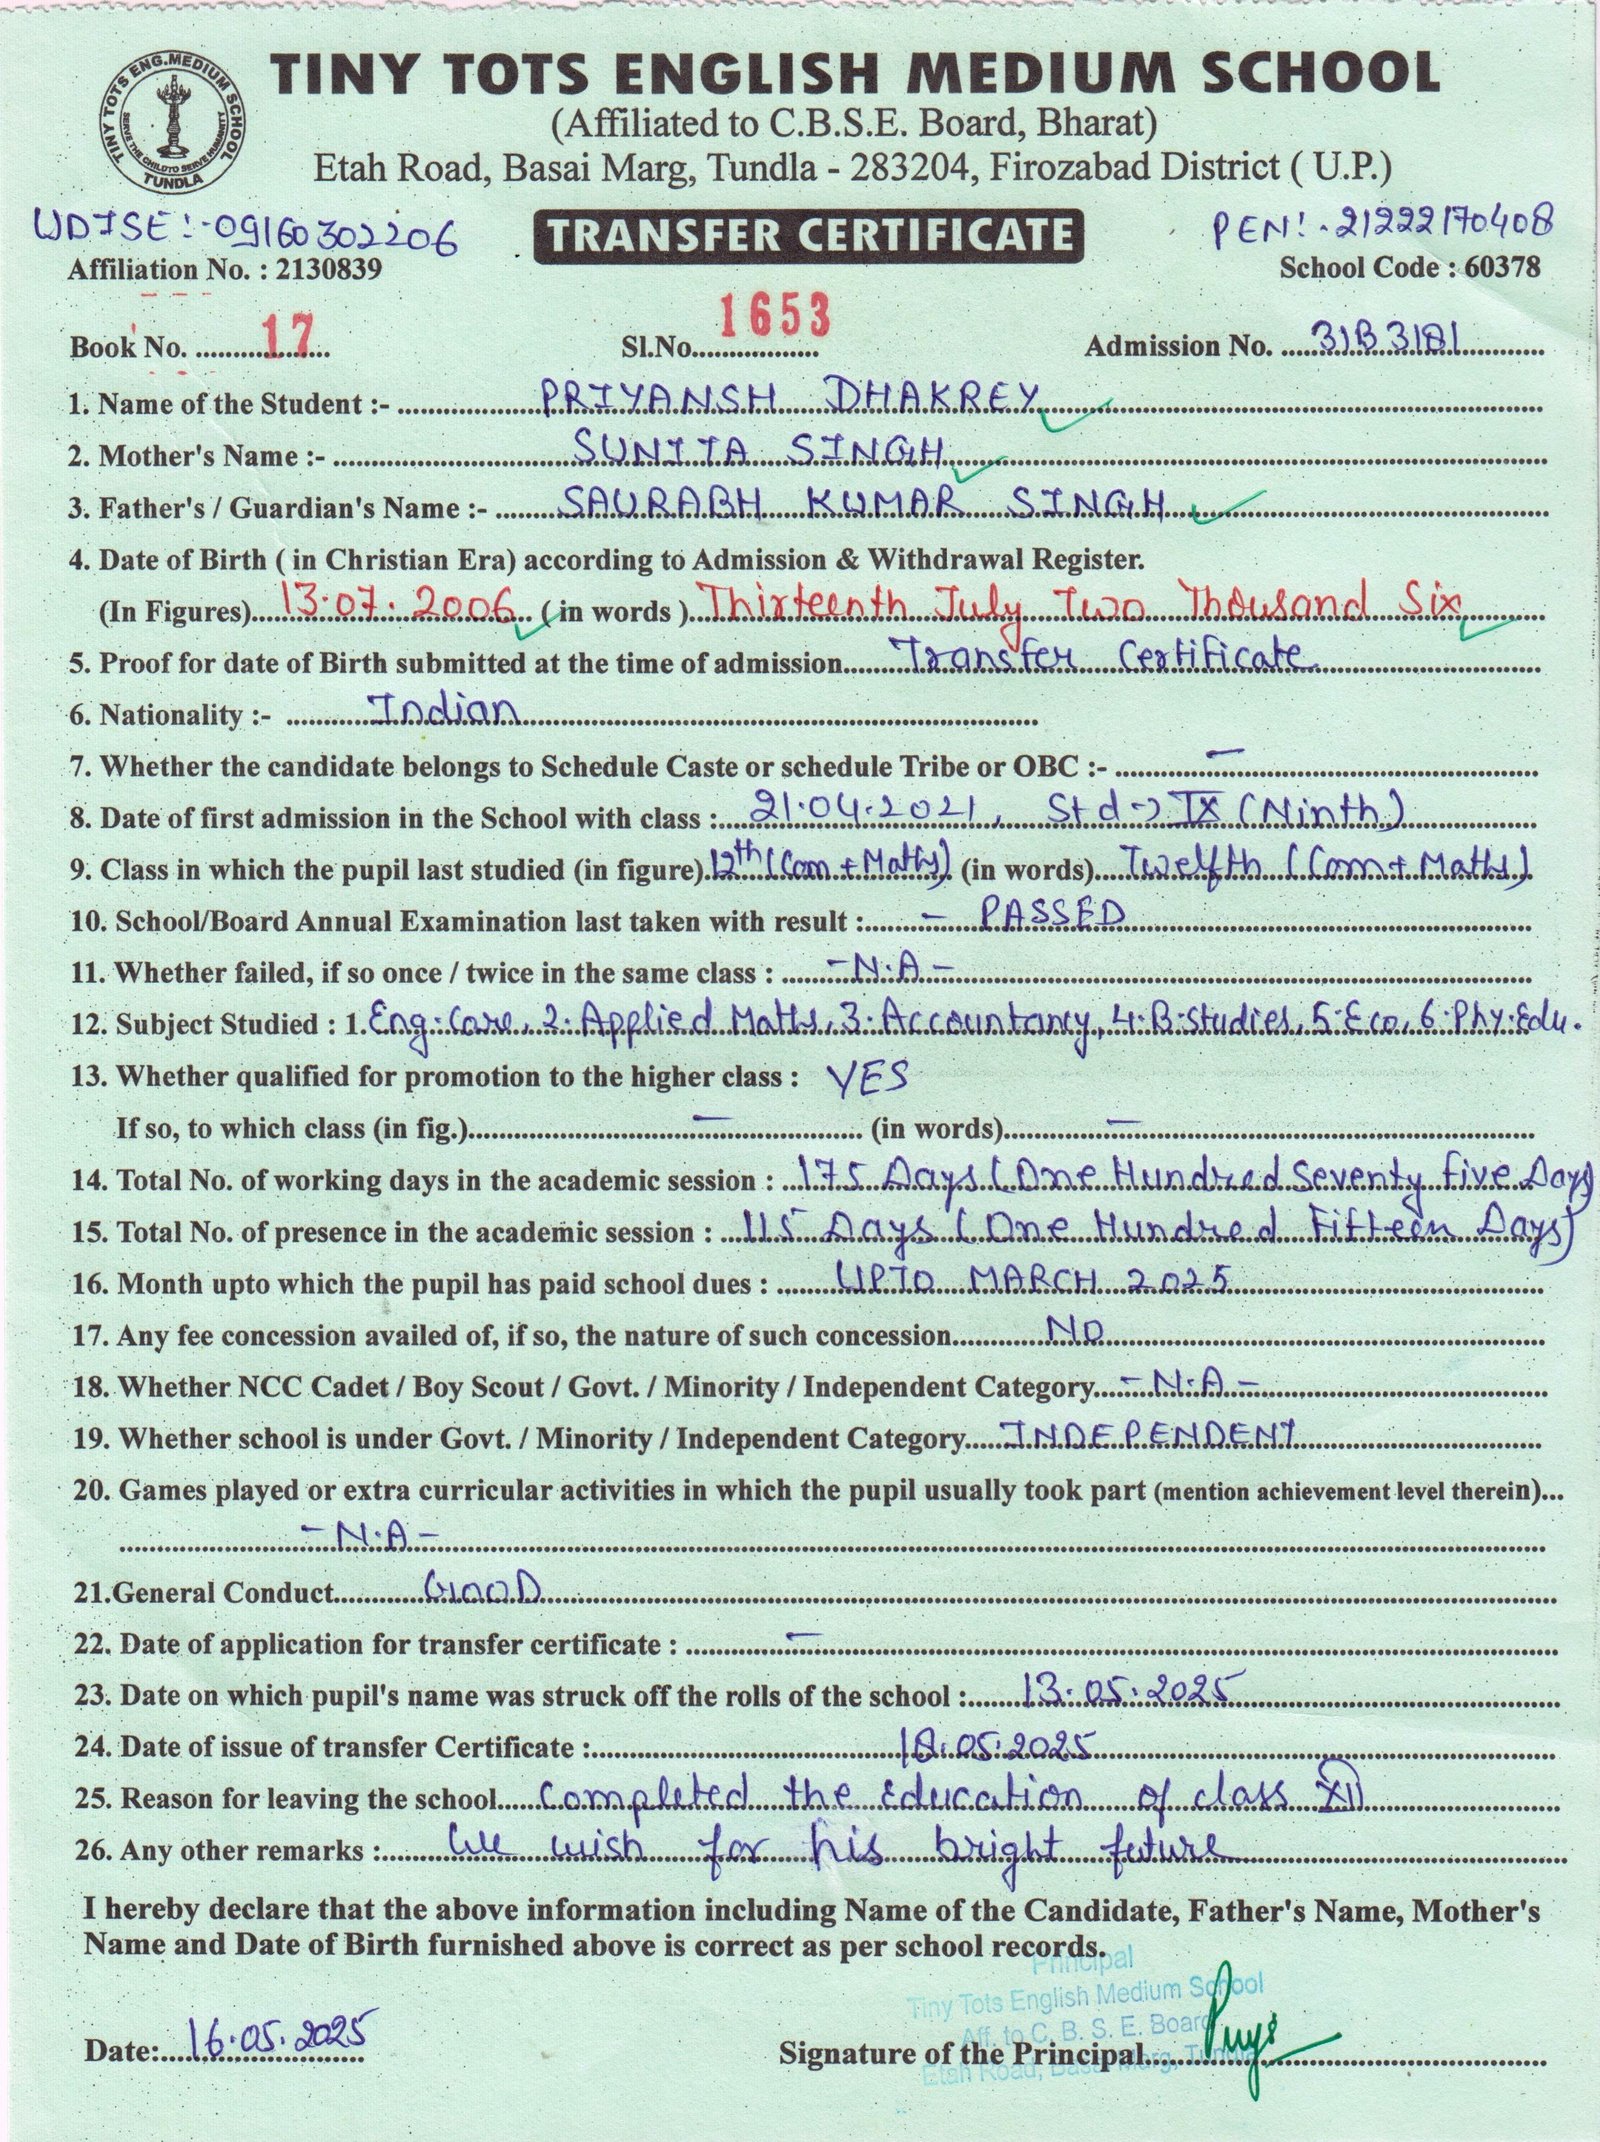 TINY TOTS ENG.MEDIUM SCHOOL
SERVE THE CHILD TO SERVE HUMANITY
TUNDLA
TINY TOTS ENGLISH MEDIUM SCHOOL
(Affiliated to C.B.S.E. Board, Bharat)
Etah Road, Basai Marg, Tundla - 283204, Firozabad District ( U.P.)
UDISE:-09160302206 TRANSFER CERTIFICATE PEN:-21222170408
Affiliation No. : 2130839 School Code : 60378
Book No. 17 Sl.No. 1653 Admission No. 31B3181
1. Name of the Student :- PRIYANSH DHAKREY
2. Mother's Name :- SUNITA SINGH
3. Father's / Guardian's Name :- SAURABH KUMAR SINGH
4. Date of Birth ( in Christian Era) according to Admission & Withdrawal Register.
(In Figures) 13.07.2006 (in words ) Thirteenth July Two Thousand Six
5. Proof for date of Birth submitted at the time of admission Transfer Certificate
6. Nationality :- Indian
7. Whether the candidate belongs to Schedule Caste or schedule Tribe or OBC :- —
8. Date of first admission in the School with class : 21.04.2021, Std -> IX (Ninth)
9. Class in which the pupil last studied (in figure) 12th (Com + Maths) (in words) Twelfth (Com + Maths)
10. School/Board Annual Examination last taken with result : - PASSED
11. Whether failed, if so once / twice in the same class : -N.A-
12. Subject Studied : 1. Eng. Core, 2. Applied Maths, 3. Accountancy, 4. B. Studies, 5. Eco, 6. Phy. Edu.
13. Whether qualified for promotion to the higher class : YES
If so, to which class (in fig.) — (in words) —
14. Total No. of working days in the academic session : 175 Days (One Hundred Seventy Five Days)
15. Total No. of presence in the academic session : 115 Days (One Hundred Fifteen Days)
16. Month upto which the pupil has paid school dues : UPTO MARCH 2025
17. Any fee concession availed of, if so, the nature of such concession NO
18. Whether NCC Cadet / Boy Scout / Govt. / Minority / Independent Category -N.A-
19. Whether school is under Govt. / Minority / Independent Category INDEPENDENT
20. Games played or extra curricular activities in which the pupil usually took part (mention achievement level therein)...
-N.A-
21.General Conduct GOOD
22. Date of application for transfer certificate : —
23. Date on which pupil's name was struck off the rolls of the school : 13.05.2025
24. Date of issue of transfer Certificate : 18.05.2025
25. Reason for leaving the school Completed the Education of class XII
26. Any other remarks : We wish for his bright future
I hereby declare that the above information including Name of the Candidate, Father's Name, Mother's
Name and Date of Birth furnished above is correct as per school records.
Principal
Tiny Tots English Medium School
Aff. to C. B. S. E. Board
Etah Road, Basai Marg, Tundla
Date: 16.05.2025 Signature of the Principal